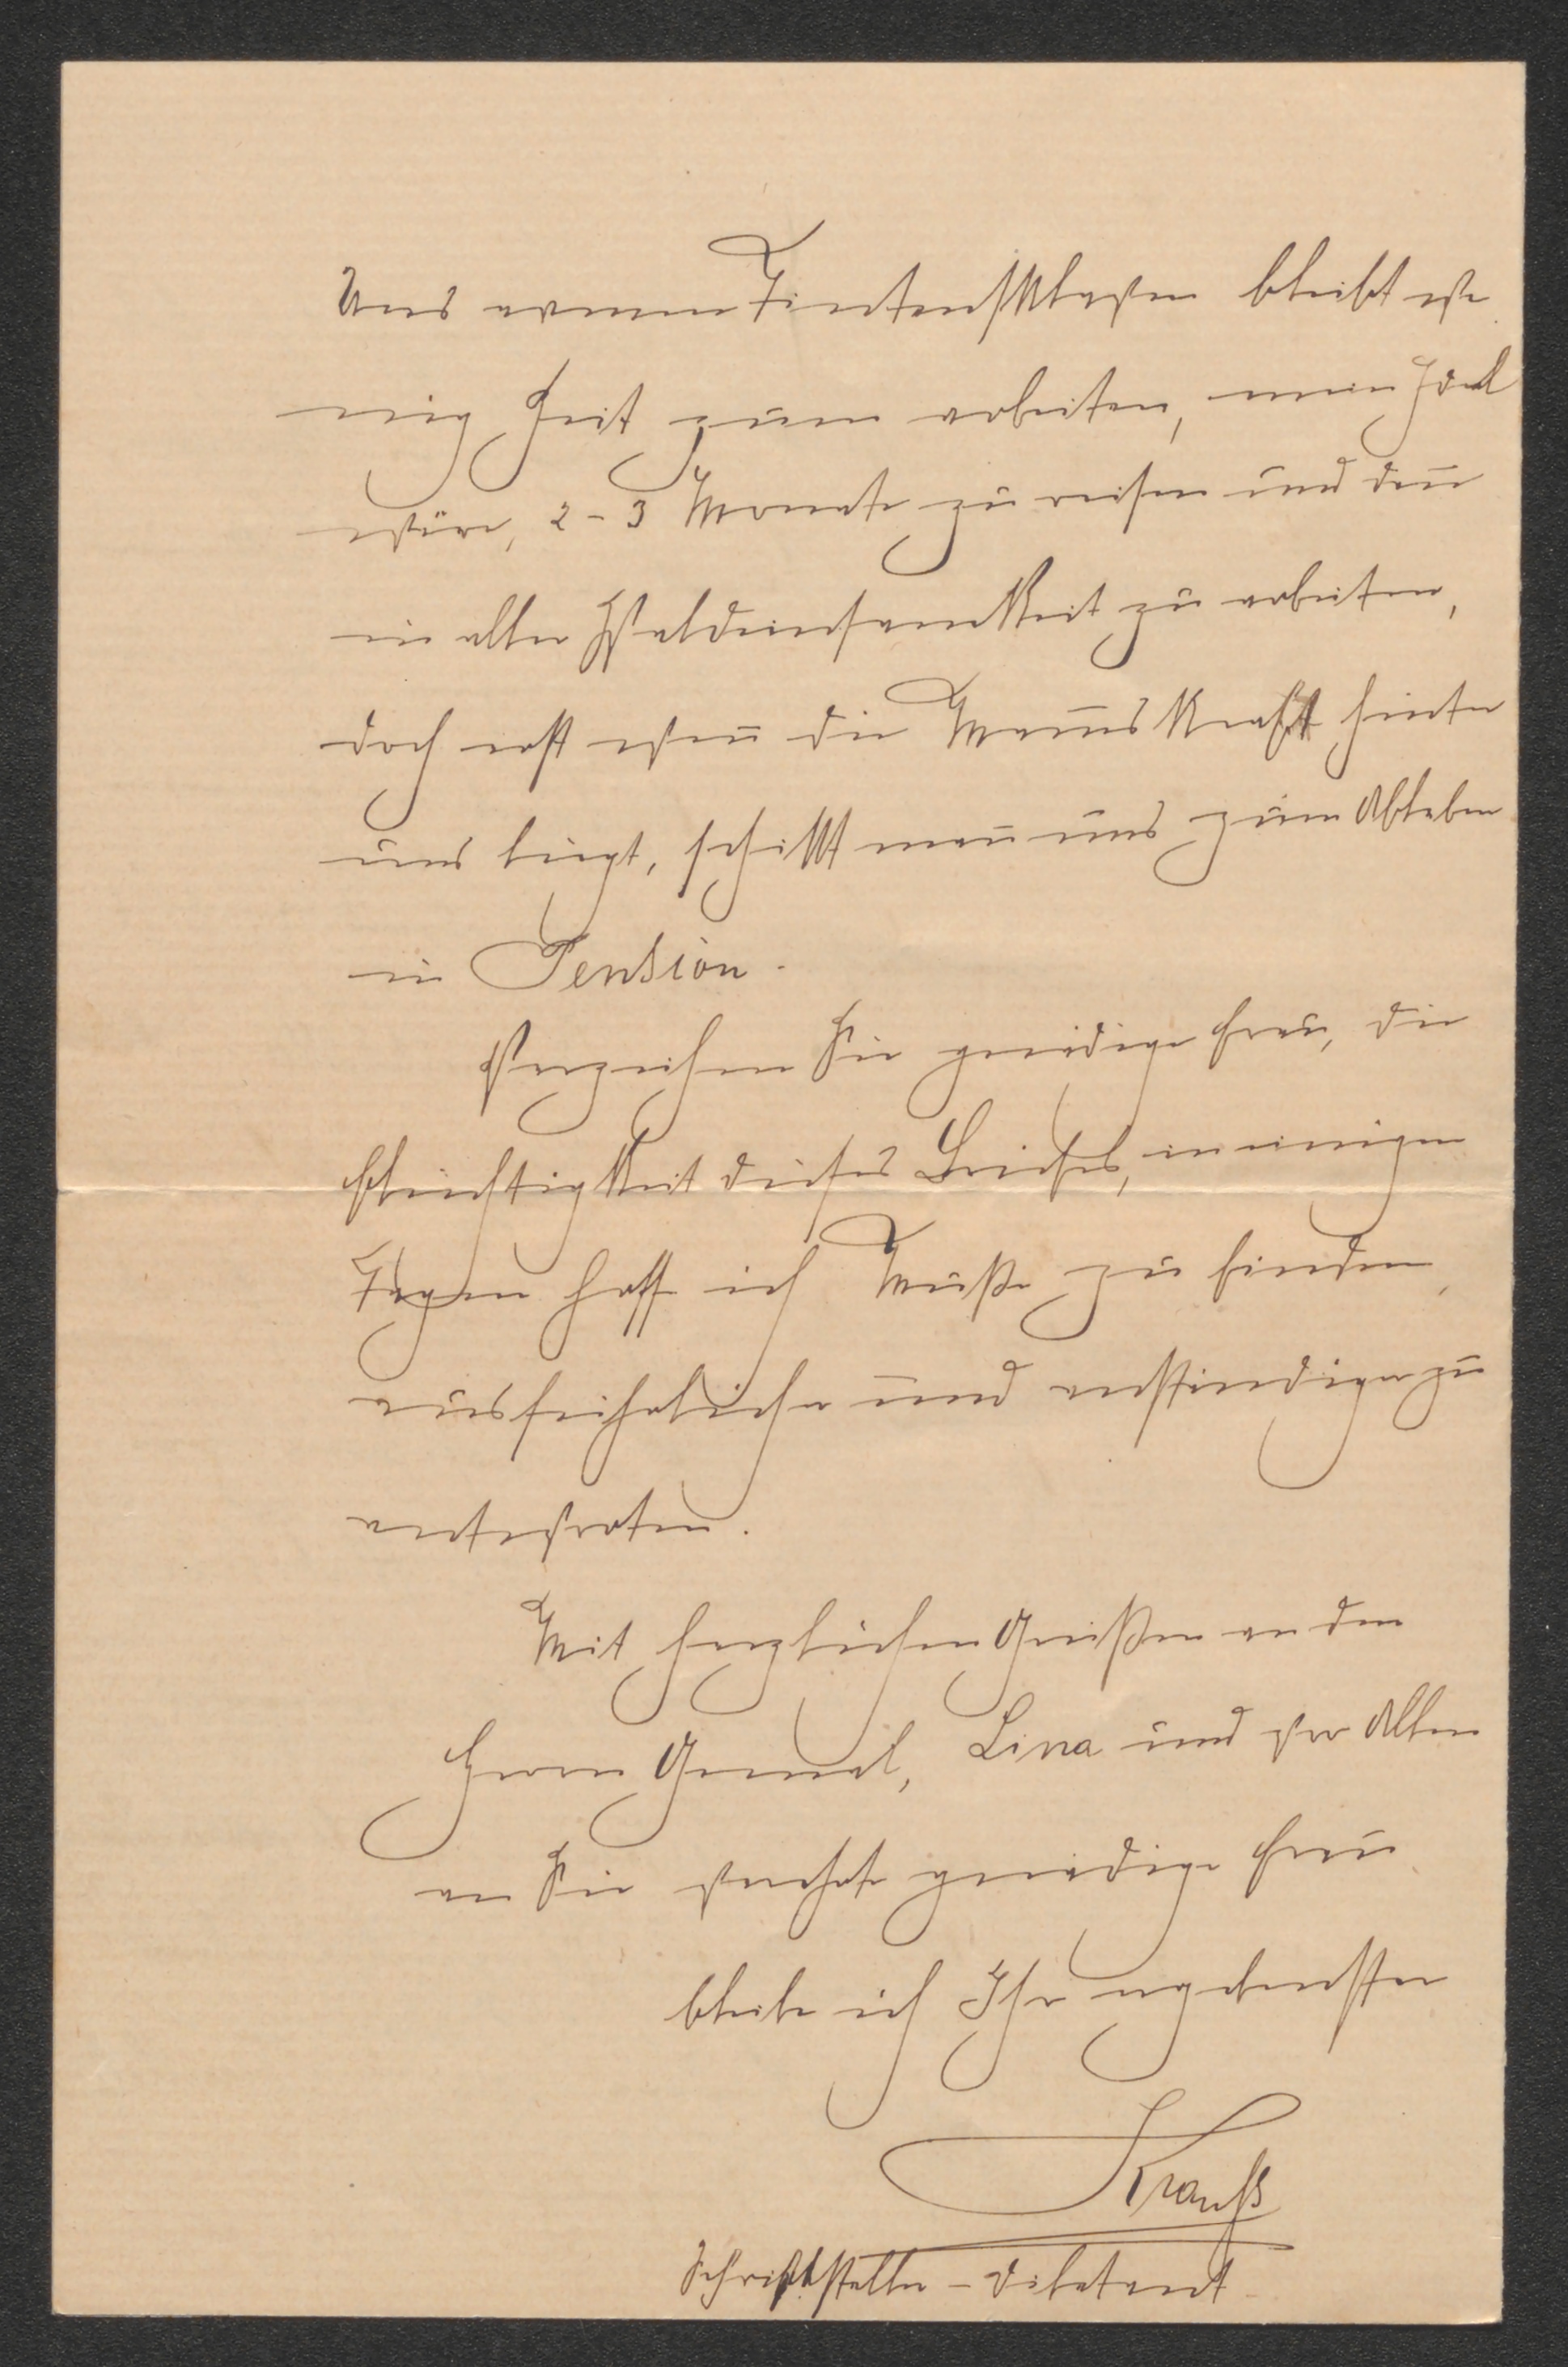 Uns armen Tintensklaven bleibt we
nig Zeit zum arbeiten, mein Ideal
wäre, 2-3 Monate zu reisen und dan̄
in aller Waldeinsamkeit zu arbeiten,
doch erst wen̄ die Man̄skraft hinter
uns liegt, schikt man uns zum Ableben
in Pension.
Verzeihen Sie gnädige Frau, die
Flüchtigkeit dieses Briefes, in einigen
Tagen hoff ich Muße zu finden,
ausführlicher und verständiger zu
antworten.
Mit herzlichen Grüßen an den
Herrn Gemal, Lina und vor Allen
an Sie verehrte gnädige Frau
bleibe ich Ihr ergebenster
Krauß
Schriftsteller - Diletant